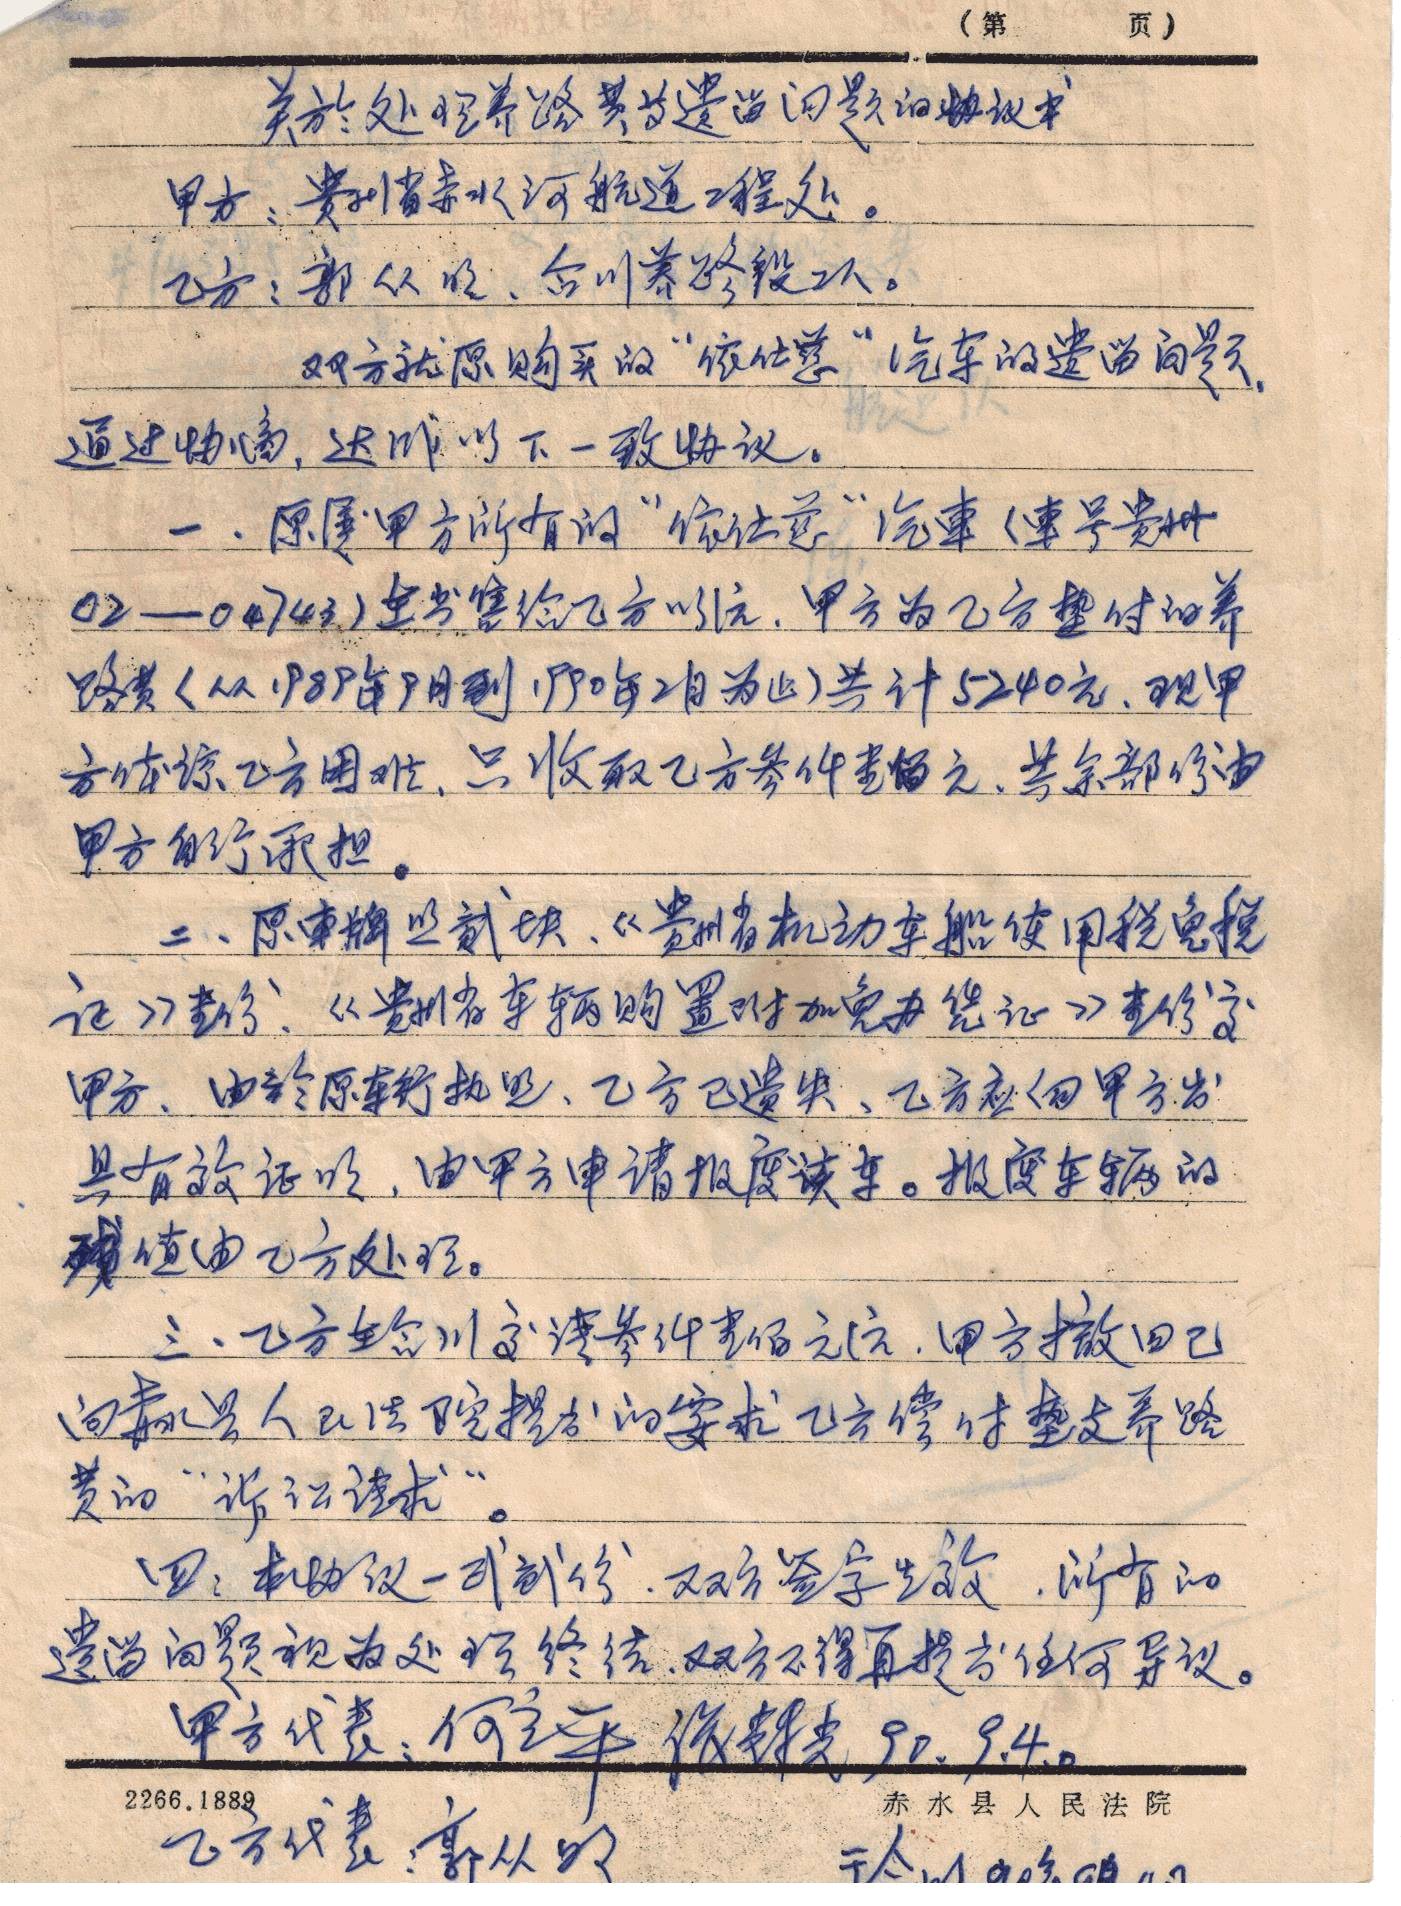 （第 页）
关於处理养路费等遗留问题的协议书
甲方：贵州省赤水河航道工程处。
乙方：郭从明、合川养路段工人。
双方就原购买的“依仕慈”汽车的遗留问题，
通过协商，达成以下一致协议。
一、原属甲方所有的“依仕慈”汽車（車号贵州
02—04743）在出售给乙方以后，甲方为乙方垫付的养
路费（从1989年9月到1990年2月为止）共计5240元、现甲
方体谅乙方困难、只收取乙方叁仟壹佰元、其余部份由
甲方自行承担。
二、原車牌照贰块、《贵州省机动车船使用税免税
证》壹份、《贵州省车辆购置附加免办凭证》壹份交
甲方、由於原车行执照、乙方已遗失、乙方应向甲方出
具有效证明、由甲方申请报废该车。报废车辆的
残值由乙方处理。
三、乙方在合川交清叁仟壹佰元后，甲方撤回已
向赤水县人民法院提出的要求乙方偿付垫支养路
费的“诉讼请求”。
四：本协议一式贰份、双方签字生效，所有的
遗留问题视为处理终结、双方不得再提出任何异议。
甲方代表：何 90.9.4.
2266.1889 赤水县人民法院
乙方代表：郭从明